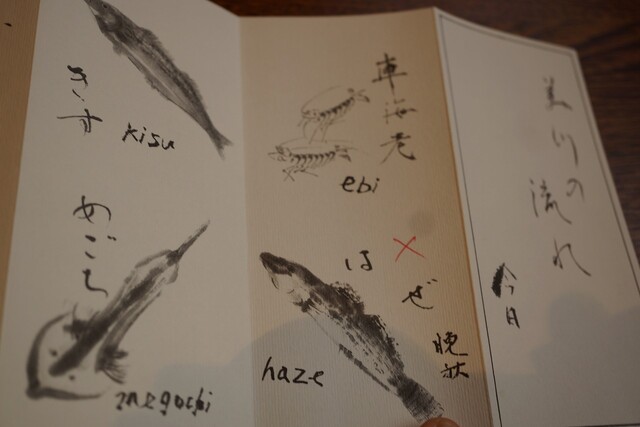 美川の流れ
今日
車海老
ebi
はぜ
晩秋
haze
きす
kisu
めごち
megochi